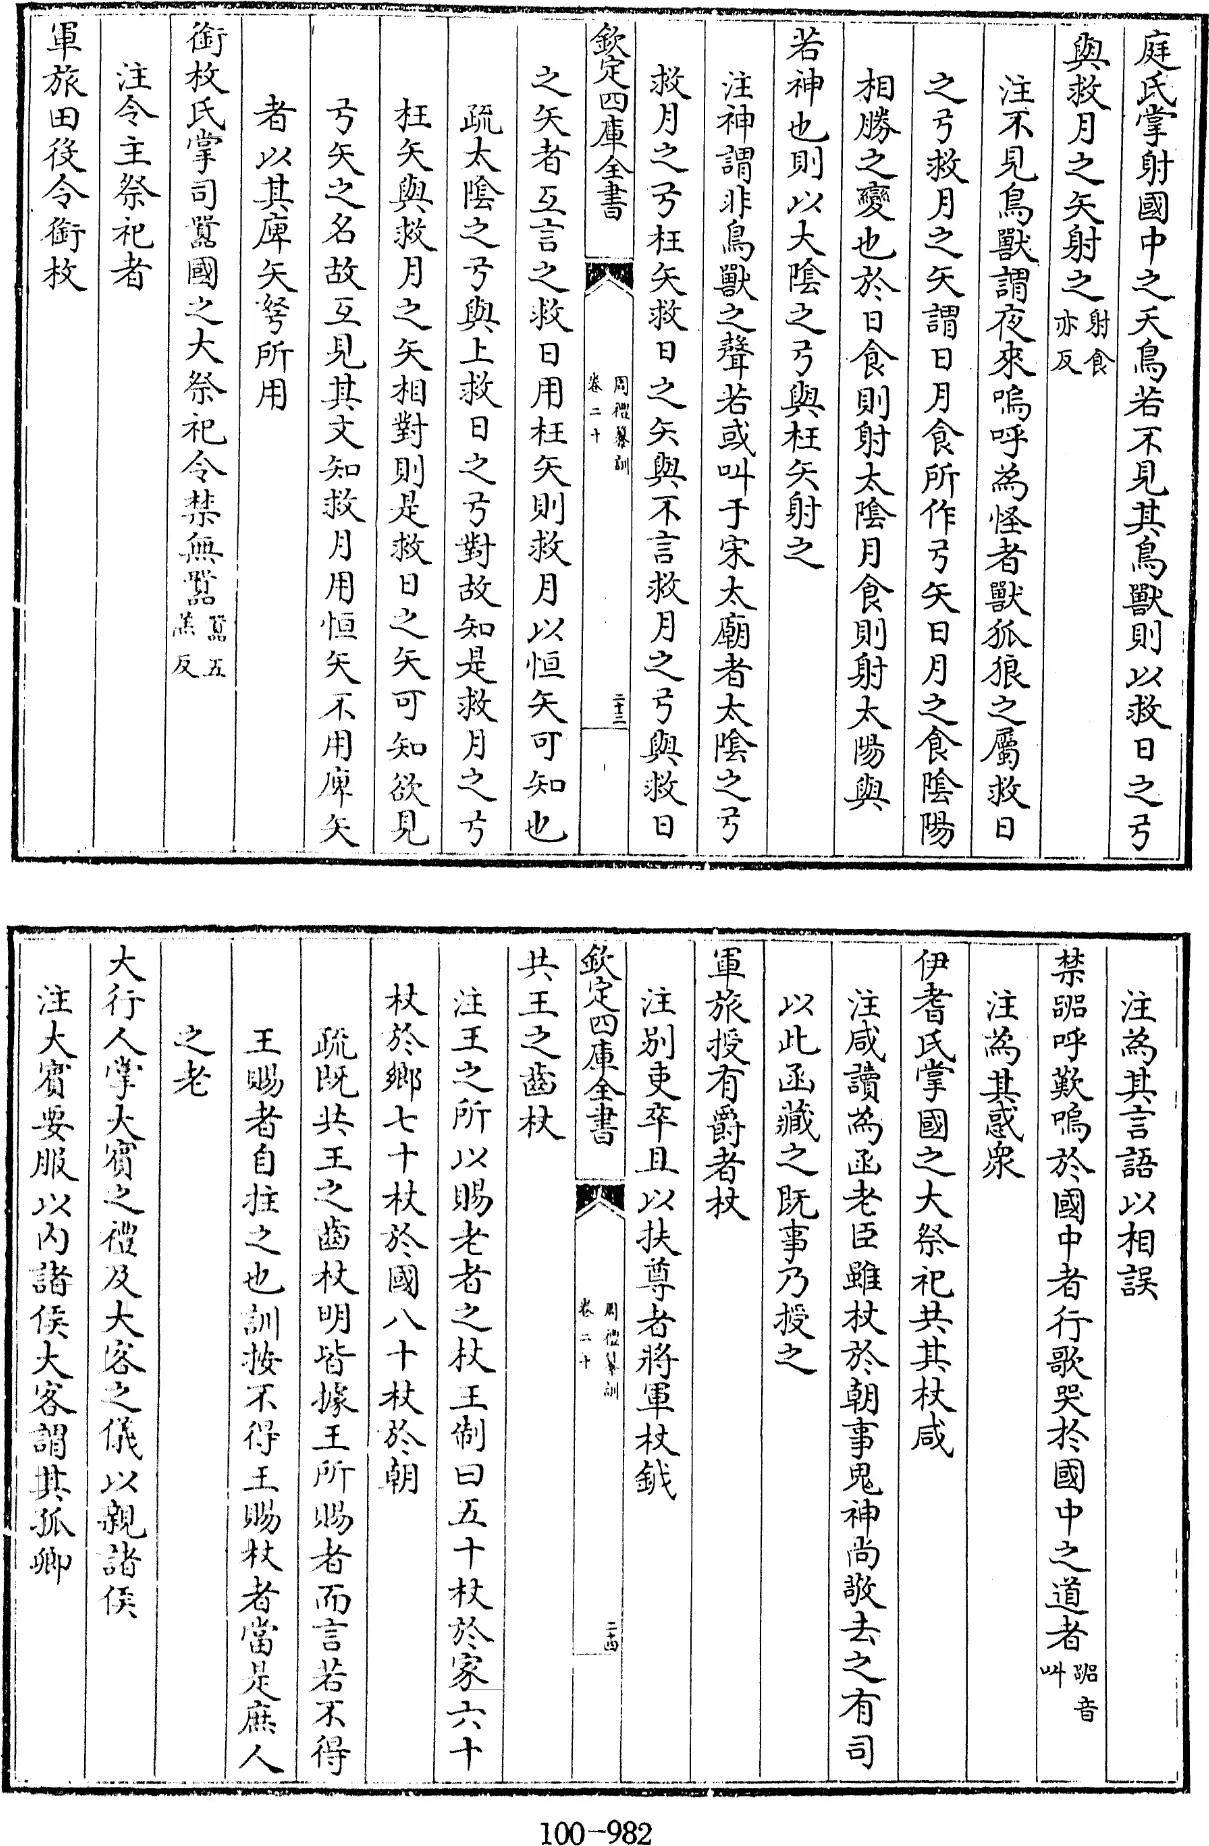 庭氏掌射國中之夭鳥若不見其鳥獸則以救日之弓
與救月之矢射之射食亦反
注不見鳥獸謂夜來嗚呼為怪者獸狐狼之屬救日
之弓救月之矢謂日月食所作弓矢日月之食陰陽
相勝之變也於日食則射太陰月食則射太陽與
若神也則以大陰之弓與枉矢射之
注神謂非鳥獸之聲若或叫于宋太廟者太陰之弓
救月之弓枉矢救日之矢與不言救月之弓與救日
欽定四庫全書
周禮纂訓
卷二十
二十三
之矢者互言之救日用枉矢則救月以恒矢可知也
疏太陰之弓與上救日之弓對故知是救月之弓
枉矢與救月之矢相對則是救日之矢可知欲見
弓矢之名故互見其文知救月用恒矢不用庳矢
者以其庳矢弩所用
銜枚氏掌司嚻國之大祭祀令禁無嚻嚻五羔反
注令主祭祀者
軍旅田役令銜枚
注為其言語以相誤
禁嘂呼歎嗚於國中者行歌哭於國中之道者嘂音叫
注為其惑衆
伊耆氏掌國之大祭祀共其杖咸
注咸讀為函老臣雖杖於朝事鬼神尚敬去之有司
以此函藏之既事乃授之
軍旅授有爵者杖
注别吏卒且以扶尊者將軍杖鉞
欽定四庫全書
周禮纂訓
卷二十
二十四
共王之齒杖
注王之所以賜老者之杖王制曰五十杖於家六十
杖於鄉七十杖於國八十杖於朝
疏既共王之齒杖明皆據王所賜者而言若不得
王賜者自拄之也訓按不得王賜杖者當是庶人
之老
大行人掌大賓之禮及大客之儀以親諸侯
注大賓要服以内諸侯大客謂其孤卿
100-982